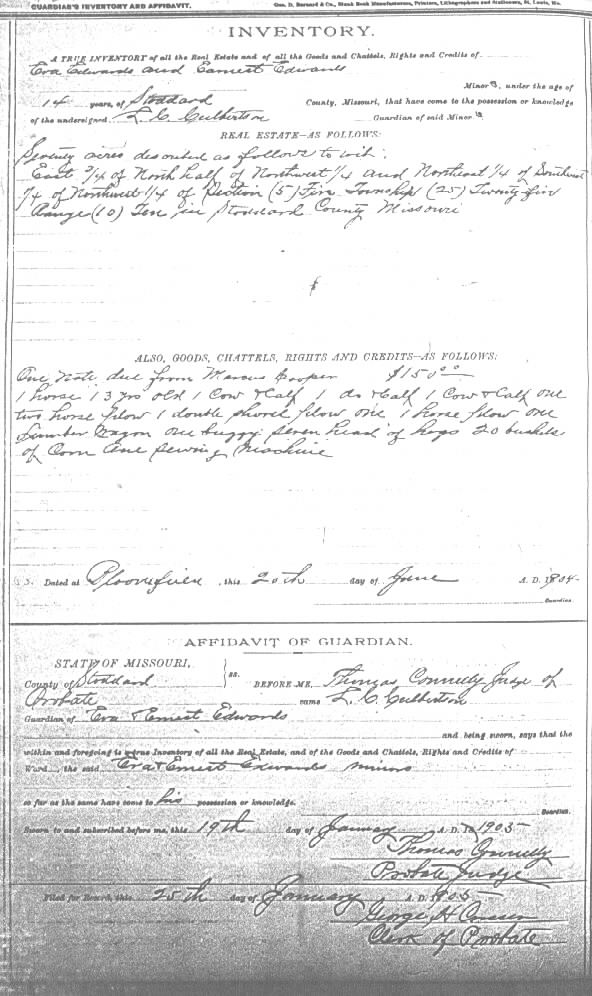 GUARDIAN'S INVENTORY AND AFFIDAVIT. Geo. D. Barnard & Co., Blank Book Manufacturers, Printers, Lithographers and Stationers, St. Louis, Mo.
INVENTORY.
A TRUE INVENTORY of all the Real Estate and of all the Goods and Chattels, Rights and Credits of
Eva Edwards and Earnest Edwards
Minors, under the age of
14 years, of Stoddard County, Missouri, that have come to the possession or knowledge
of the undersigned L. C. Culbertson Guardian of said Minors
REAL ESTATE—AS FOLLOWS:
Seventy acres described as follows to wit:
East 3/4 of North half of Northwest 1/4 and Northeast 1/4 of Southeast
1/4 of Northwest 1/4 of Section (5) Five Township (25) Twenty five
Range (10) Ten in Stoddard County Missouri
ALSO, GOODS, CHATTELS, RIGHTS AND CREDITS—AS FOLLOWS:
One Note due from Marcus Cooper $150.00
1 horse 13 yrs old 1 Cow & Calf 1 do & Calf 1 Cow & Calf one
two horse plow 1 double shovel plow one 1 horse plow one
Lumber Wagon one buggy seven head of hogs 20 bushels
of Corn One Sewing Machine
Dated at Bloomfield, this 20th day of June A. D. 1904-
Guardian.
AFFIDAVIT OF GUARDIAN.
STATE OF MISSOURI,
County of Stoddard ss. BEFORE ME, Thomas Connelly Judge of
Probate came L. C. Culbertson
Guardian of Eva & Ernest Edwards
and being sworn, says that the
within and foregoing is a true Inventory of all the Real Estate, and of the Goods and Chattels, Rights and Credits of
Ward, the said Eva & Ernest Edwards minors
so far as the same have come to his possession or knowledge.
Guardian.
Sworn to and subscribed before me, this 19th day of January A. D. 1905-
Thomas Connelly
Probate Judge
Filed for Record, this 25th day of January A. D. 1905-
George H
Clerk of Probate